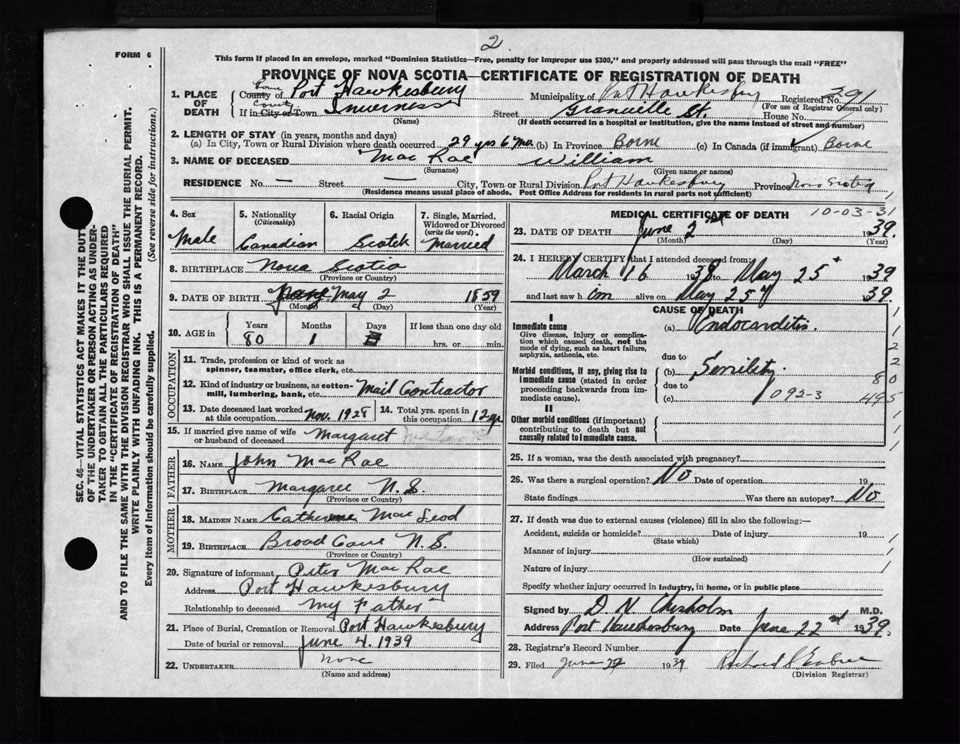 2
FORM 6
This form if placed in an envelope, marked "Dominion Statistics—Free, penalty for improper use $300," and properly addressed will pass through the mail "FREE"
PROVINCE OF NOVA SCOTIA—CERTIFICATE OF REGISTRATION OF DEATH
1. PLACE OF DEATH
County of Port Hawkesbury Municipality of Port Hawkesbury Registered No. 391
(For use of Registrar General only)
County
If in City or Town Inverness Street Granville St. House No.
(Name) (If death occurred in a hospital or institution, give the name instead of street and number)
2. LENGTH OF STAY (in years, months and days)
(a) In City, Town or Rural Division where death occurred 29 yrs 6 mo. (b) In Province Borne (c) In Canada (if immigrant) Borne
3. NAME OF DECEASED Mac Rae William
(Surname) (Given name or names)
RESIDENCE No. — Street — City, Town or Rural Division Port Hawkesbury Province Nova Scotia
(Residence means usual place of abode. Post Office Address for residents in rural parts not sufficient)
4. Sex Male
5. Nationality (Citizenship) Canadian
6. Racial Origin Scotch
7. Single, Married, Widowed or Divorced (write the word) Married
8. BIRTHPLACE Nova Scotia
(Province or Country)
9. DATE OF BIRTH May 2 1859
(Month) (Day) (Year)
10. AGE in Years 80 Months 1 Days If less than one day old hrs. or min.
OCCUPATION
11. Trade, profession or kind of work as spinner, teamster, office clerk, etc.
12. Kind of industry or business, as cotton-mill, lumbering, bank, etc. Mail Contractor
13. Date deceased last worked at this occupation Nov. 1928
14. Total yrs. spent in this occupation 12 yr.
15. If married give name of wife or husband of deceased Margaret
FATHER
16. NAME John Mac Rae
17. BIRTHPLACE Margaree N.S.
(Province or Country)
MOTHER
18. MAIDEN NAME Catherine Mac Leod
19. BIRTHPLACE Broad Cove N.S.
(Province or Country)
20. Signature of informant Peter Mac Rae
Address Port Hawkesbury
Relationship to deceased My Father
21. Place of Burial, Cremation or Removal Port Hawkesbury
Date of burial or removal June 4. 1939
22. UNDERTAKER None
(Name and address)
MEDICAL CERTIFICATE OF DEATH 10-03-31
23. DATE OF DEATH June 2nd 1939.
(Month) (Day) (Year)
24. I HEREBY CERTIFY that I attended deceased from:
March 16 1938 to May 25th 1939
and last saw him alive on May 25th 1939.
CAUSE OF DEATH
I
Immediate cause (a) Endocarditis.
Give disease, injury or complication which caused death, not the mode of dying, such as heart failure, asphyxia, asthenia, etc.
due to
Morbid conditions, if any, giving rise to immediate cause (stated in order proceeding backwards from immediate cause).
(b) Senility
due to
(c) 092-3
II
Other morbid conditions (if important) contributing to death but not causally related to immediate cause.
1
1
2
2
80
495
1
25. If a woman, was the death associated with pregnancy?
26. Was there a surgical operation? No Date of operation 19
State findings Was there an autopsy? No
27. If death was due to external causes (violence) fill in also the following:—
Accident, suicide or homicide? Date of injury 19
(State which)
Manner of injury
(How sustained)
Nature of injury
Specify whether injury occurred in industry, in home, or in public place
Signed by D. N. Chisholm M.D.
Address Port Hawkesbury Date June 22nd 1939.
28. Registrar's Record Number
29. Filed June 1939
(Division Registrar)
SEC. 46—VITAL STATISTICS ACT MAKES IT THE DUTY OF THE UNDERTAKER OR PERSON ACTING AS UNDERTAKER TO OBTAIN ALL THE PARTICULARS REQUIRED IN THE "CERTIFICATE OF REGISTRATION OF DEATH"
AND TO FILE THE SAME WITH THE DIVISION REGISTRAR WHO SHALL ISSUE THE BURIAL PERMIT.
WRITE PLAINLY WITH UNFADING INK. THIS IS A PERMANENT RECORD.
Every item of information should be carefully supplied. (See reverse side for instructions.)